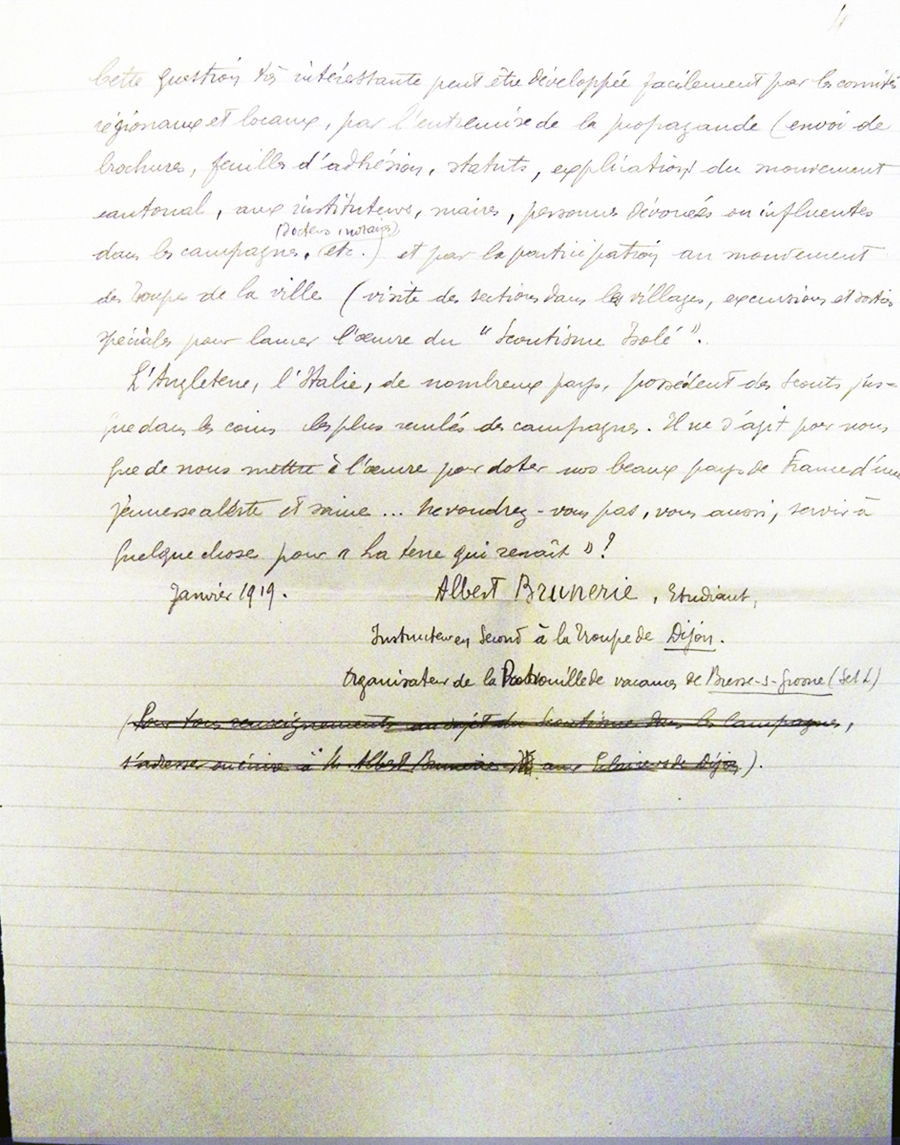 Cette question très intéressante peut être développée facilement par les comités
régionaux et locaux, par l'entremise de la propagande (envoi de
brochures, feuilles d'adhésion, statuts, explications du mouvement
cantonal, aux instituteurs, maires, personnes dévouées ou influentes
(Docteurs, notaires)
dans les campagnes, etc.) et par la participation au mouvement
des Troupes de la ville (visite des sections dans les villages, excursions et sorties
spéciales pour lancer l'œuvre du "Scoutisme Isolé".
L'Angleterre, l'Italie, de nombreux pays, possèdent des Scouts jus-
que dans les coins les plus reculés des campagnes. Il ne s'agit pour nous
que de nous mettre à l'œuvre pour doter nos beaux pays de France d'une
jeunesse alerte et saine... Ne voudrez-vous pas, vous aussi, servir à
quelque chose pour "La terre qui renaît"?
Janvier 1919. Albert Brunerie, Etudiant,
Instructeur en Second à la Troupe de Dijon.
Organisateur de la Patrouille de vacances de Bresse-s-Grosne (S et L)
(Pour tous renseignements au sujet du Scoutisme dans les Campagnes,
s'adresser ou écrire à Mr Albert Brunerie aux Eclaireurs de Dijon).